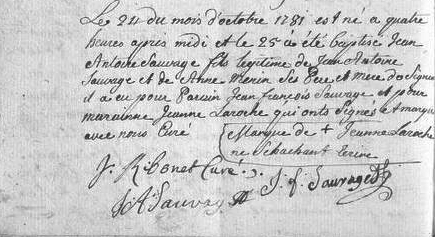 Le 24 du mois d'octobre 1781 est né a quatre
heures après midi et le 25 à été baptise Jean
Antoine Sauvage fils legitime de Jean Antoine
Sauvage et de Anne Merin Ses Pere et mere do Signé
il a eu pour Parein Jean françois Sauvage et pour
maraine Jeanne Laroche qui onts Signés & marqué
avec nous Curé
Marque de + Jeanne Laroche
ne Sachant Ecrire
J. Ribonet Curé.
J. f. Sauvage
JASauvage